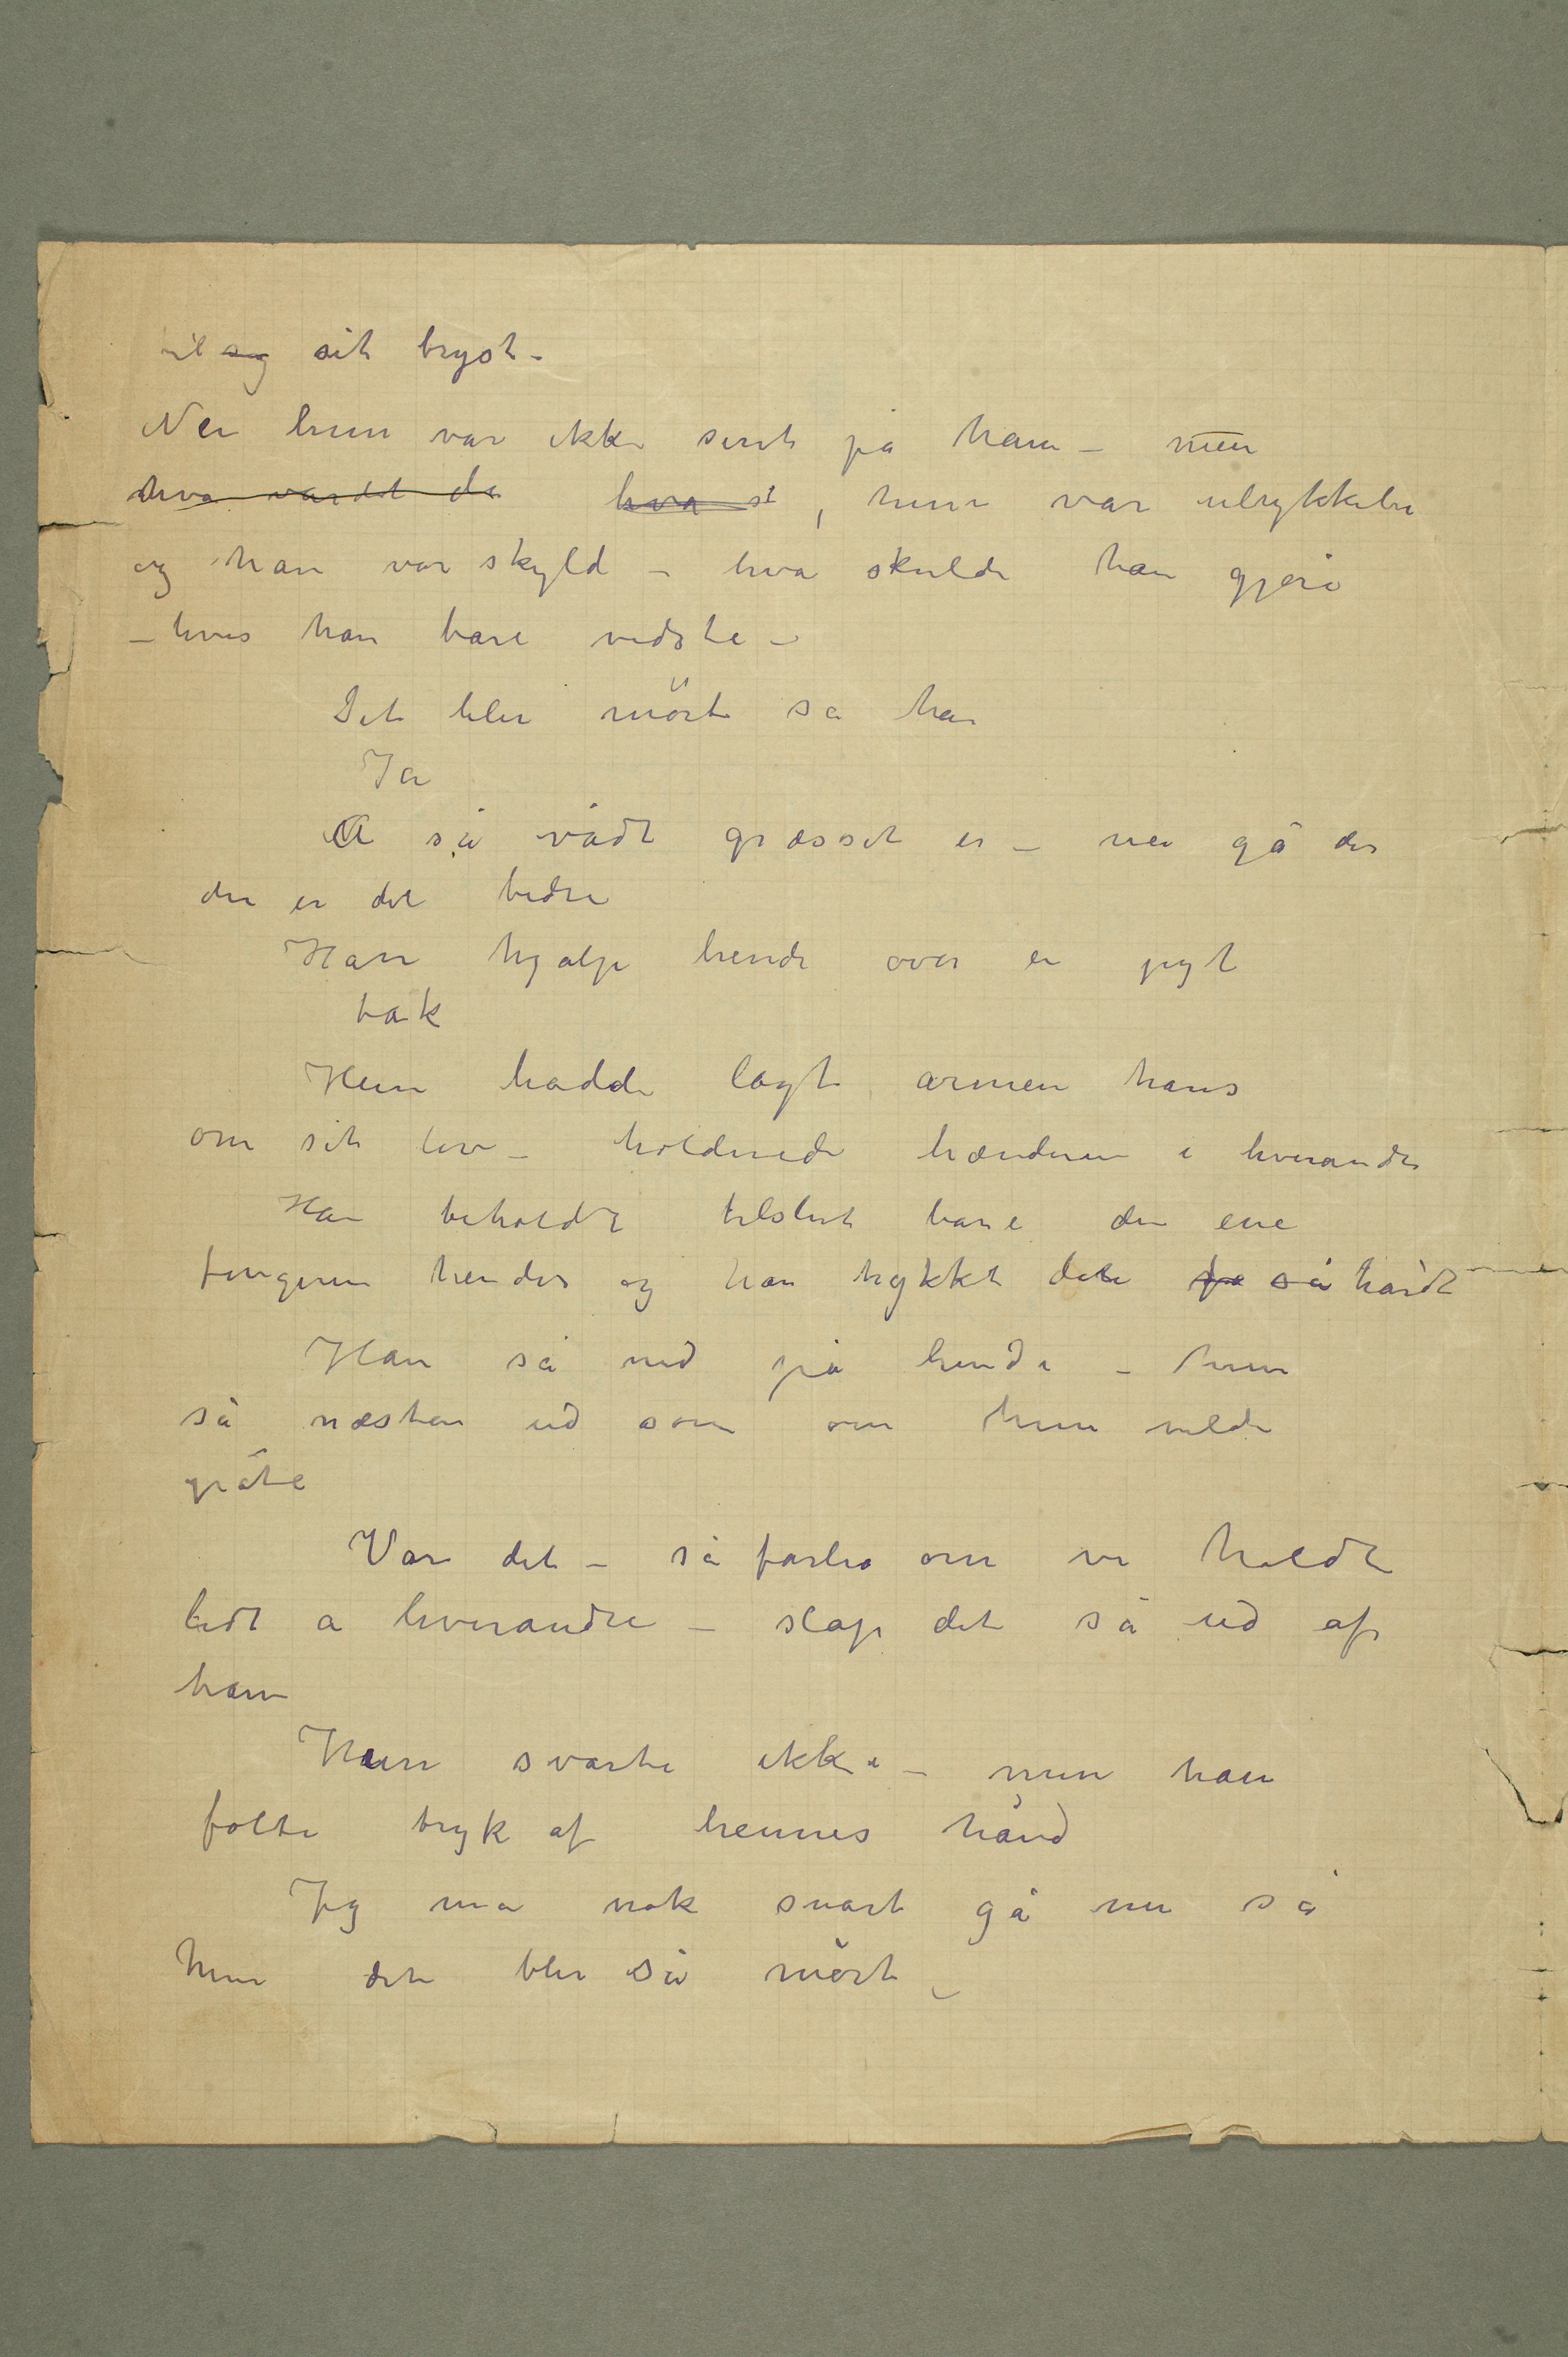 til sig sit bryst –
Nei hun var ikke sint på ham – men
hva var det da hva s , hun var ulykkeli
og han var skyld – hva skulde han gjøre
– hvis han bare vidste –
Det blir mörkt sa han
Ja
A så vådt græsset er – nei gå der
der er det bedre
Han hjalp hende over en pyt
tak
Hun hadde lagt armen hans
om sit liv – holdende hænderne i hverandre
Han beholdt tilslut bare den ene
fingeren hendes og han trykkte dete fo så hårdt
Han så ned på hende – hun
så næsten ud som om hun vilde
gråte
Var det – så farlio om vi holdt
lidt a hverandre – slap det så ud af
ham
Hun svarte ikke – men han
følte tryk af hennes hånd
Jeg ma nok snart gå nu sa
hun det blir så mörkt –